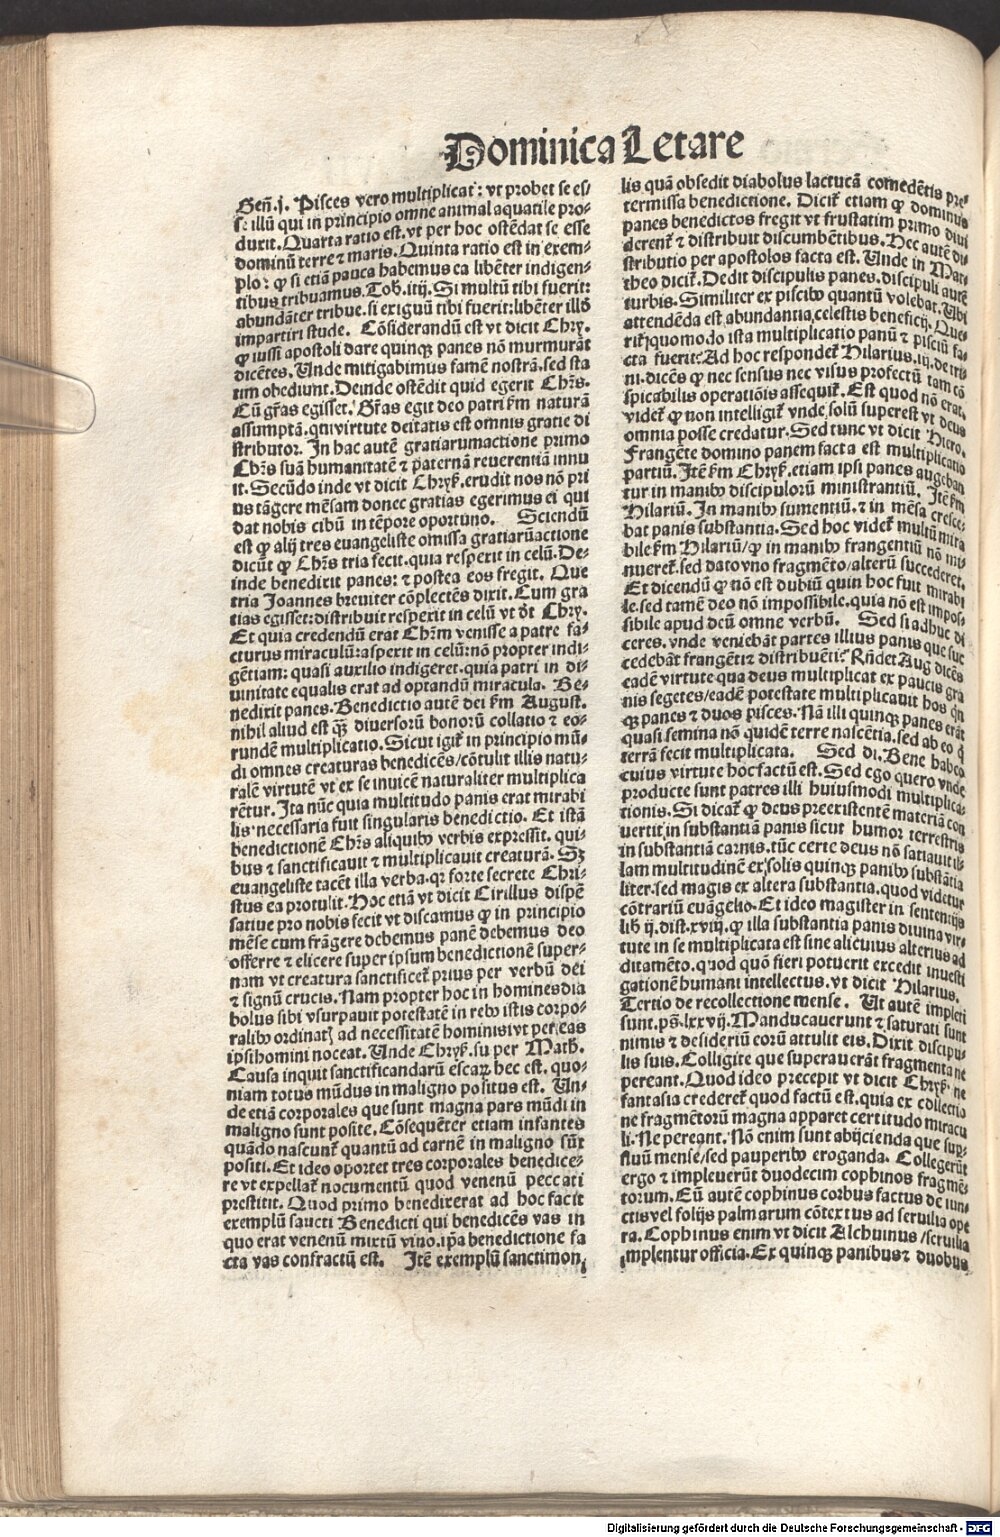 Dominica Letare
Geñ.j. Pisces vero multiplicat: vt probet se es-
se illũ qui in principio omne animal aquatile pro-
duxit. Quarta ratio est. vt per hoc ostẽdat se esse
dominũ terre ⁊ maris. Quinta ratio est in exem-
plo: ꝙ si etiã pauca habemus ea libẽter indigen-
tibus tribuamus. Tob. iiij. Si multũ tibi fuerit:
abundãter tribue. si exiguũ tibi fuerit: libẽter illđ
impartiri stude. Cõsiderandũ est vt dicit Chry.
ꝙ iussi apostoli dare quinqꝫ panes nõ murmurãt
dicẽtes. Unde mitigabimus famẽ nostrã. sed sta
tim obediunt. Deinde ostẽdit quid egerit Chr̃s.
Cũ gr̃as egisset. Gr̃as egit deo patri ẜm naturã
assumptã. qui virtute deitatis est omnis gratie di
stributor. In hac autẽ gratiarumactione primo
Chr̃s suã humanitatẽ ⁊ p̃aternã reuerentiã innu
it. Secũdo inde vt dicit Chryẜ. erudit nos nõ pri
us tãgere mẽsam donec gratias egerimus ei qui
dat nobis cibũ in tẽpore oportuno. Sciendũ
est ꝙ alij tres euangeliste omissa gratiarũactione
dicũt ꝙ Chr̃s tria fecit. quia respexit in celũ. De-
inde benedixit panes: ⁊ postea eos fregit. Que
tria Joannes breuiter cõplectẽs dixit. Cum gra
tias egisset: distribuit respexit in celũ vt đt Chry.
Et quia credendũ erat Chr̃m venisse a patre fa-
cturus miraculũ: aspexit in celũ: nõ propter indi-
gẽtiam: quasi auxilio indigeret. quia patri in di-
uinitate equalis erat ad optandũ miracula. Be-
nedixit panes. Benedictio autẽ dei ẜm August.
nihil aliud est qꝫ̃ diuersorũ bonorũ collatio ⁊ eo-
rundẽ multiplicatio. Sicut igiẗ in principio mũ-
di omnes creaturas benedicẽs/cõtulit illis natu-
ralẽ virtutẽ vt ex se inuicẽ naturaliter multiplica
rẽtur. Ita nũc quia multitudo panis erat mirabi
lis necessaria fuit singularis benedictio. Et istã
benedictionẽ Chr̃s aliquibꝰ verbis expressit. qui-
bus ⁊ sanctificauit ⁊ multiplicauit creaturã. Sꝫ
euangeliste tacẽt illa verba. qꝛ forte secrete Chri-
stus ea protulit. Hoc etiã vt dicit Cirillus dispẽ
satiue pro nobis fecit vt discamus ꝙ in principio
mẽse cum frãgere debemus panẽ debemus deo
offerre ⁊ elicere super ipsum benedictionẽ super-
nam vt creatura sanctificeẗ prius per verbũ dei
⁊ signũ crucis. Nam propter hoc in homines dia
bolus sibi vsurpauit potestatẽ in rebꝰ istis corpo-
ralibꝰ ordinatꝭ ad necessitatẽ hominis: vt per eas
ipsi homini noceat. Unde Chryẜ. super Math.
Causa inquit sanctificandarũ escaꝝ hec est. quo-
niam totus mũdus in maligno positus est. Un-
de etiã corporales que sunt magna pars mũdi in
maligno sunt posite. Cõsequẽter etiam infantes
quãdo nascunẗ quantũ ad carnẽ in maligno sũt
positi. Et ideo oportet tres corporales benedice-
re vt expellaẗ nocumentũ quod venenũ peccati
prestitit. Quod primo benedixerat ad hoc facit
exemplũ sancti Benedicti qui benedicẽs vas in
quo erat venenũ mixtũ vino. ip̃a benedictione fa
cta vas confractũ est. Itẽ exemplũ sanctimon,
lis quã obsedit diabolus lactucã comedẽtis pre-
termissa benedictione. Diciẗ etiam ꝙ dominus
panes benedictos fregit vt frustatim primo diui
derenẗ ⁊ distribuit discumbẽtibus. Hec autẽ di-
stributio per apostolos facta est. Unde in Mat-
theo diciẗ. Dedit discipulis panes. discipuli autẽ
turbis. Similiter ex piscibꝰ quantũ volebat. Ubi
attendẽda est abundantia celestis beneficij. Que
riẗ quomodo ista multiplicatio panũ ⁊ pisciũ fa-
cta fuerit. Ad hoc respondeẗ Hilarius. iij. de tri-
ni. dicẽs ꝙ nec sensus nec visus profectũ tam cõ
spicabilis operatiõis assequiẗ. Est quod nõ erat.
videẗ ꝙ non intelligiẗ vnde solũ superest vt deus
omnia posse credatur. Sed tunc vt dicit Hiero.
Frangẽte domino panem facta est multiplicatio
partiũ. Itẽ ẜm Chryẜ. etiam ipsi panes augeban
tur in manibꝰ discipulorũ ministrantiũ. Itẽ ẜm
Hilariũ. In manibꝰ sumentiũ. ⁊ in mẽsa cresce-
bat panis substantia. Sed hoc videẗ multũ mira
bile ẜm Hilariũ/ꝙ in manibꝰ frangentiũ nõ mi
nuereẗ. sed dato vno fragmẽto/alterũ succederet.
Et dicendũ ꝙ nõ est dubiũ quin hoc fuit mirabi
le. sed tamẽ deo nõ impossibile. quia nõ est impos
sibile apud deũ omne verbũ. Sed si adhuc di
ceres. vnde veniebãt partes illius panis que suc
cedebãt frangẽti ⁊ distribuẽti: Rñdet Aug dicẽs
eadẽ virtute qua deus multiplicat ex paucis gra
nis segetes/eadẽ potestate multiplicauit hos qn̄
qꝫ panes ⁊ duos pisces. Nã illi quinqꝫ panes erãt
quasi semina nõ quidẽ terre nascẽtia. sed ab eo q̃
terrã fecit multiplicata. Sed di. Bene habeo
cuius virtute hoc factũ est. Sed ego quero vnde
producte sunt partes illi huiusmodi multiplica-
tionis. Si dicaẗ ꝙ deus preexistentẽ materiã con
uertit in substantiã panis sicut humor terrestris
in substantiã carnis. tũc certe deus nõ satiauit il-
lam multitudinẽ ex solis quinqꝫ panibꝰ substãtia
liter. sed magis ex altera substantia. quod videtur
cõtrariũ euãgelio. Et ideo magister in sententijs
lib̃ ij. dist. xviij. ꝙ illa substantia panis diuina vir-
tute in se multiplicata est sine alicuius alterius ad
ditamẽto. quod quõ fieri potuerit excedit inuesti
gationẽ humani intellectus. vt dicit Hilarius.
Tertio de recollectione mense. Ut autẽ impleti
sunt. ps̃. lxxvij. Manducauerunt ⁊ saturati sunt
nimis ⁊ desideriũ eorũ attulit eis. Dixit discipu-
lis suis. Colligite que superauerãt fragmenta ne
pereant. Quod ideo precepit vt dicit Chryẜ. ne
fantasia credereẗ quod factũ est. quia ex collectio
ne fragmẽtorũ magna apparet certitudo miracu
li. Ne pereant. Nõ enim sunt abijcienda que suꝑ-
fluũ mense/sed pauperibꝰ eroganda. Collegerũt
ergo ⁊ impleuerũt duodecim cophinos fragmẽ-
torum. Eũ autẽ cophinus corbus factus de iun-
ctis vel folijs palmarum cõtextus ad seruilia ope
ra. Cophinus enim vt dicit Alchuinus/seruilia
implentur officia. Ex quinqꝫ panibus ⁊ duobus
Digitalisierung gefördert durch die Deutsche Forschungsgemeinschaft - DFG